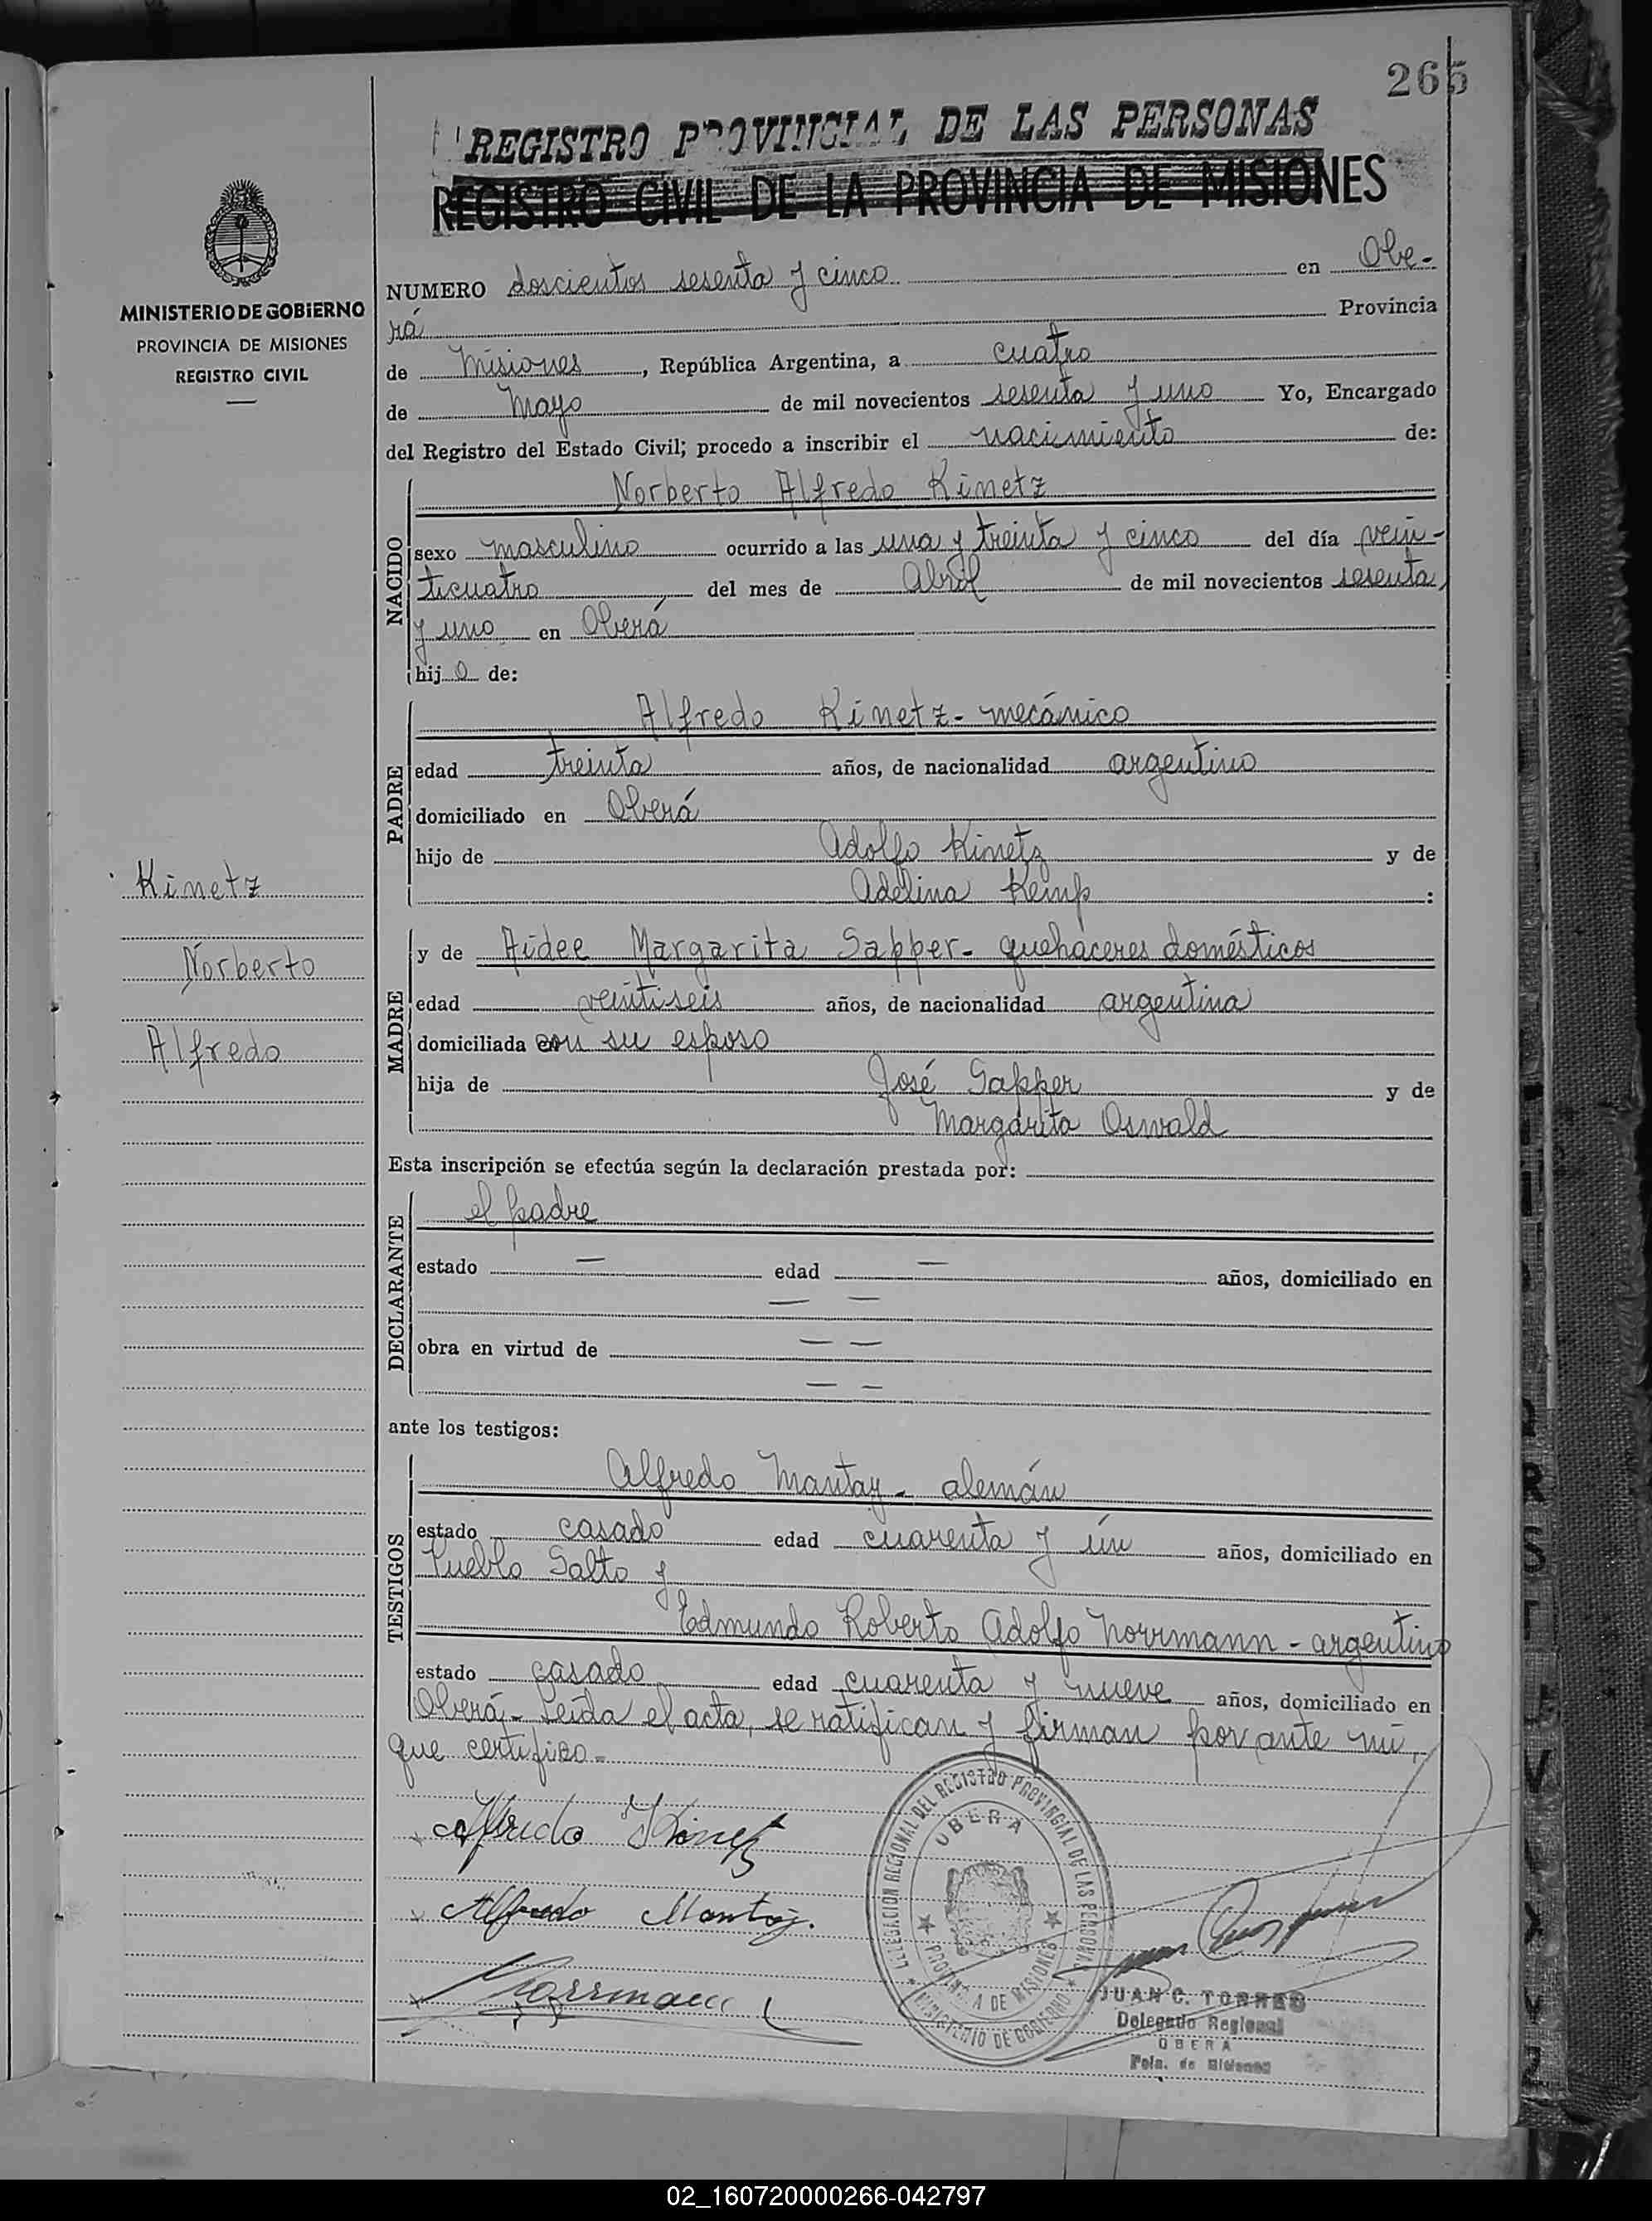 265
REGISTRO PROVINCIAL DE LAS PERSONAS
REGISTRO CIVIL DE LA PROVINCIA DE MISIONES
MINISTERIO DE GOBIERNO
PROVINCIA DE MISIONES
REGISTRO CIVIL
NUMERO doscientos sesenta y cinco en Obe-
rá Provincia
de Misiones, República Argentina, a cuatro
de Mayo de mil novecientos sesenta y uno Yo, Encargado
del Registro del Estado Civil; procedo a inscribir el nacimiento de:
NACIDO
Norberto Alfredo Kinetz
sexo masculino ocurrido a las una y treinta y cinco del día vein-
ticuatro del mes de Abril de mil novecientos sesenta
y uno en Oberá
hijo de:
PADRE
Alfredo Kinetz - mecánico
edad treinta años, de nacionalidad argentino
domiciliado en Oberá
hijo de Adolfo Kinetz y de
Adelina Kemp :
Kinetz
Norberto
Alfredo
MADRE
y de Aidee Margarita Sapper - quehaceres domésticos
edad veintiseis años, de nacionalidad argentina
domiciliada con su esposo
hija de José Sapper y de
Margarita Oswald
Esta inscripción se efectúa según la declaración prestada por:
DECLARANTE
el padre
estado — edad — años, domiciliado en
— —
obra en virtud de — —
— —
ante los testigos:
TESTIGOS
Alfredo Mantay - alemán
estado casado edad cuarenta y ún años, domiciliado en
Pueblo Salto y
Edmundo Roberto Adolfo Norrmann - argentino
estado casado edad cuarenta y nueve años, domiciliado en
Oberá - Leída el acta, se ratifican y firman por ante mí,
que certifico.-
Alfredo Kinetz
Alfredo Mantay.
Norrmann
DELEGACION REGIONAL DEL REGISTRO PROVINCIAL DE LAS PERSONAS
OBERA
PROVINCIA DE MISIONES
MINISTERIO DE GOBIERNO
JUAN C. TORRES
Delegado Regional
OBERA
Pcia. de Misiones
02_160720000266-042797